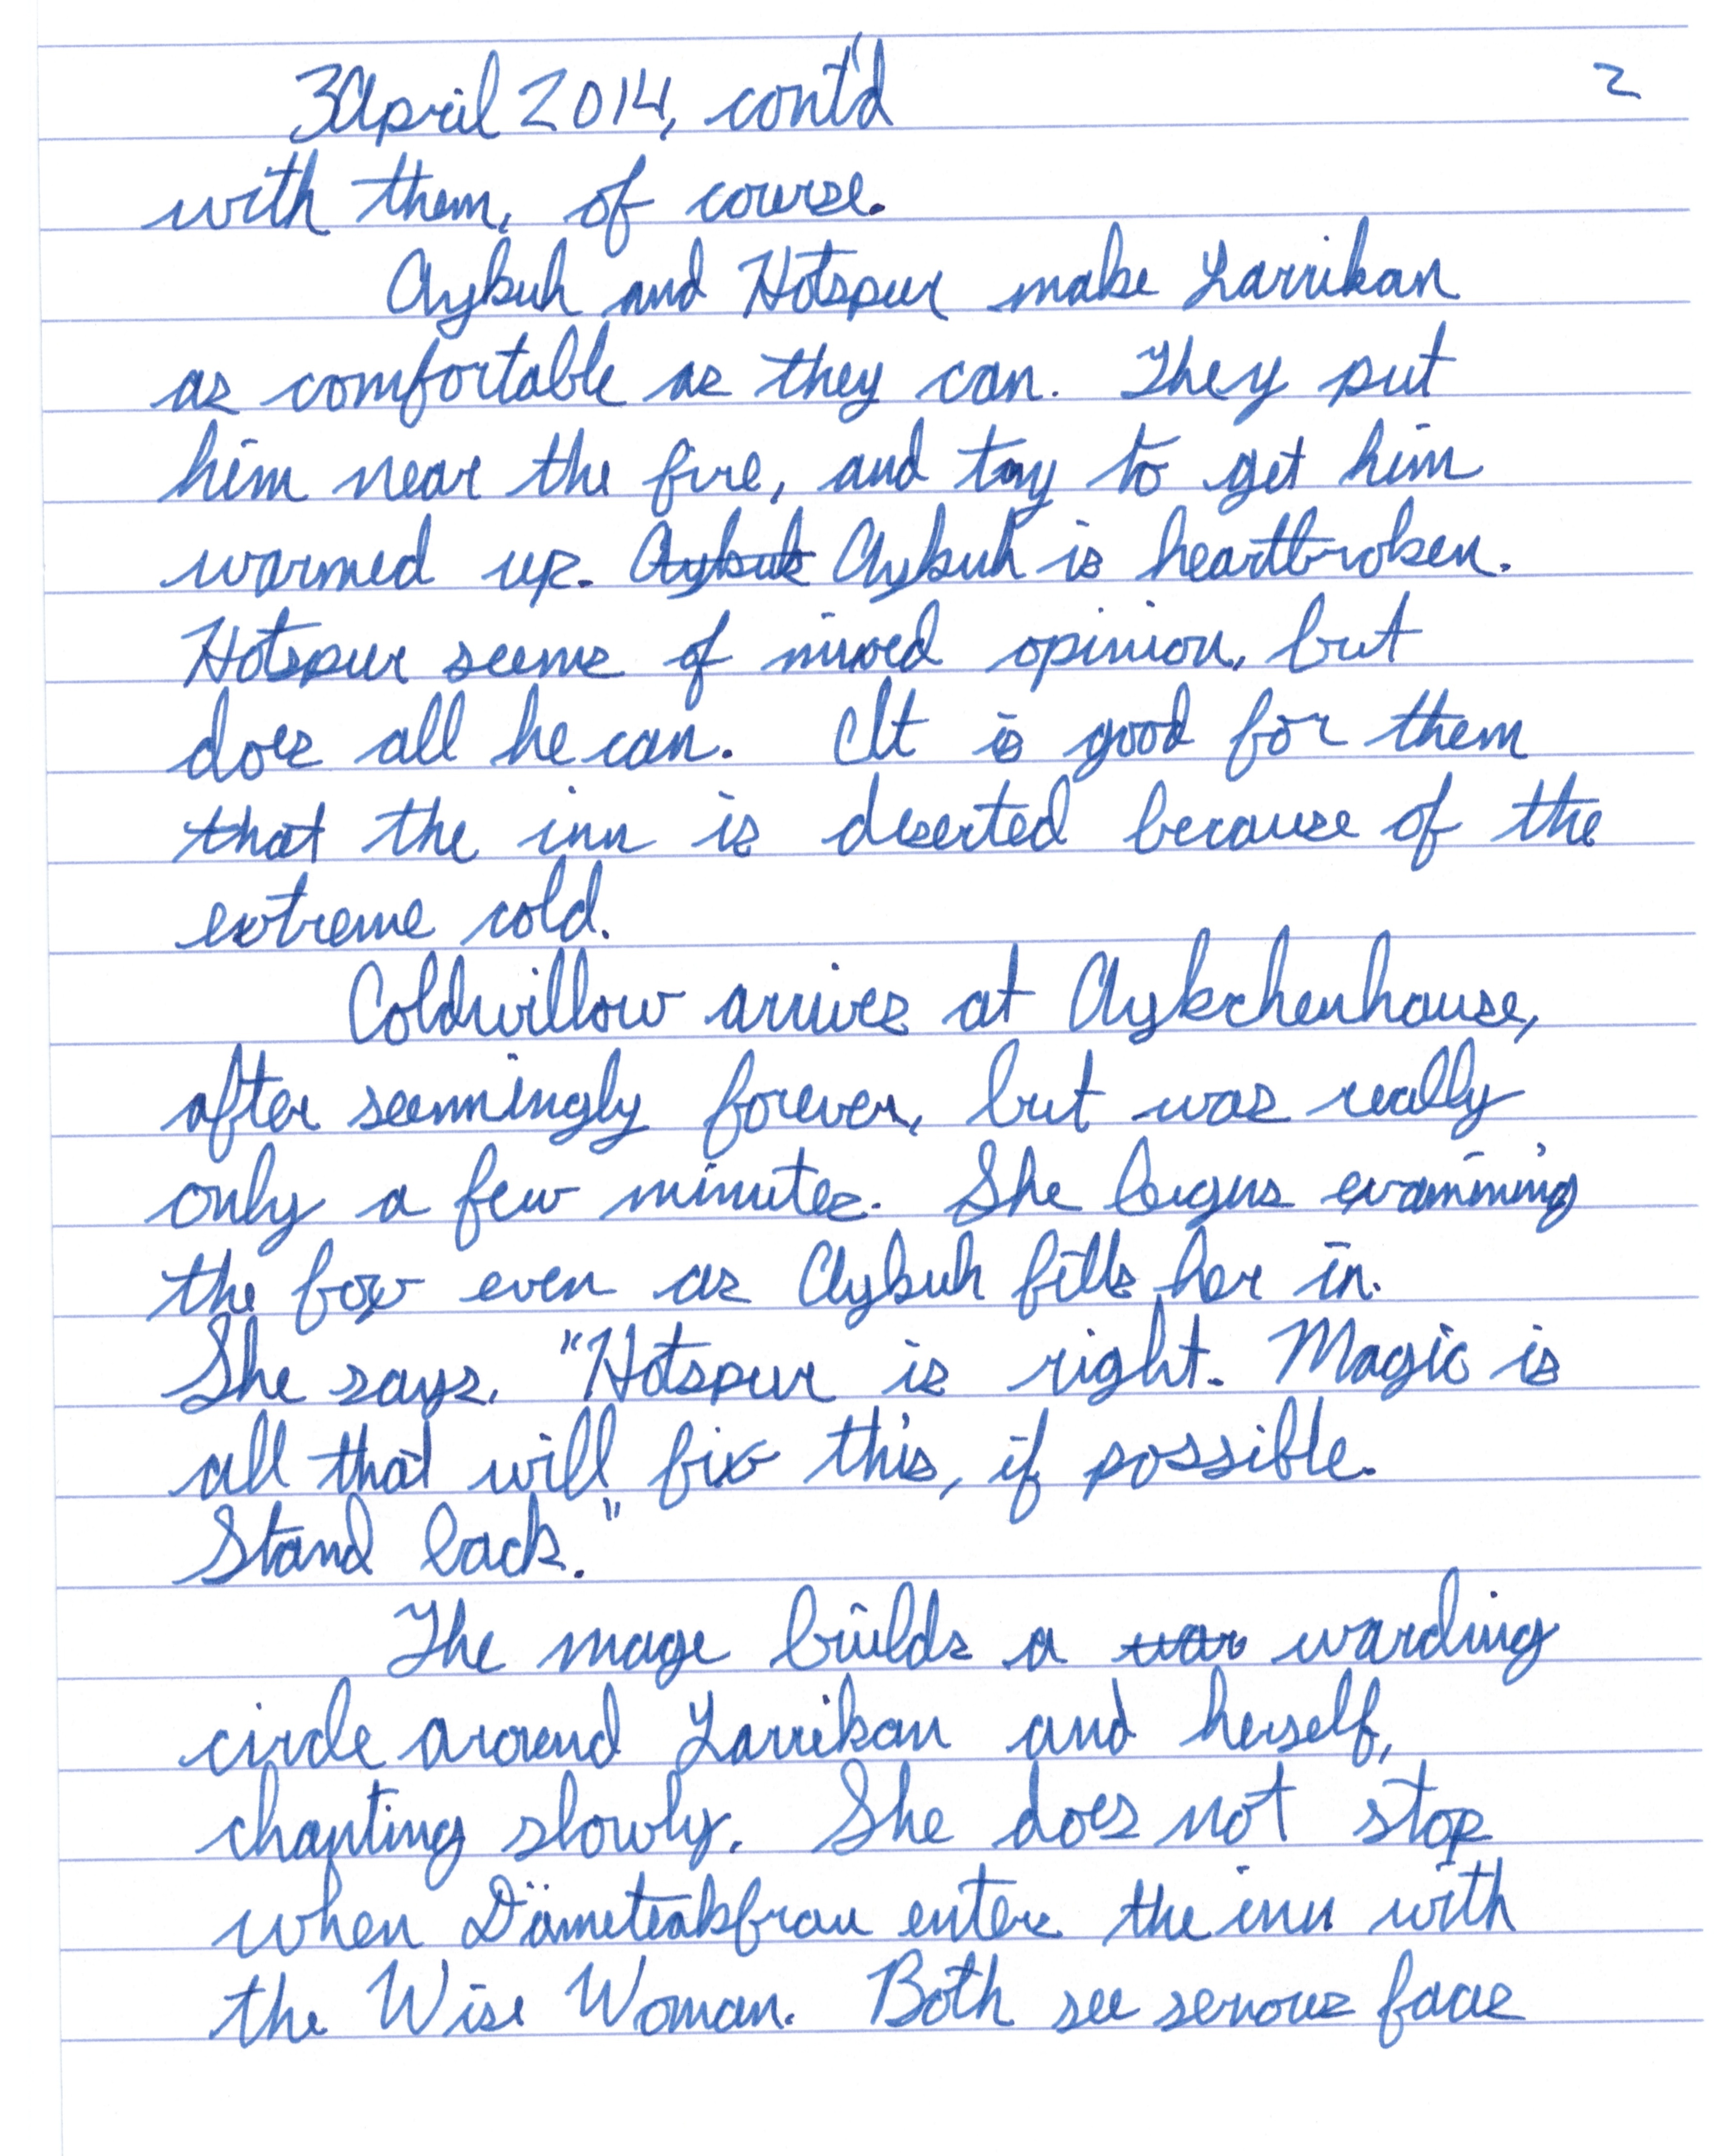 3 April 2014, cont'd 2
with them, of course.
Aykuh and Hotspur make Larrikan
as comfortable as they can. They put
him near the fire, and try to get him
warmed up. Aykuk Aykuh is heartbroken.
Hotspur seems of mixed opinion, but
does all he can. It is good for them
that the inn is deserted because of the
extreme cold.
Coldwillow arrives at Aykchenhause,
after seemingly forever, but was really
only a few minutes. She begins examining
the fox even as Aykuh fills her in.
She says, "Hotspur is right. Magic is
all that will fix this, if possible.
Stand back."
The mage builds a war warding
circle around Larrikan and herself,
chanting slowly. She does not stop
when Dämeteakfrau enters the inn with
the Wise Woman. Both see serious faces